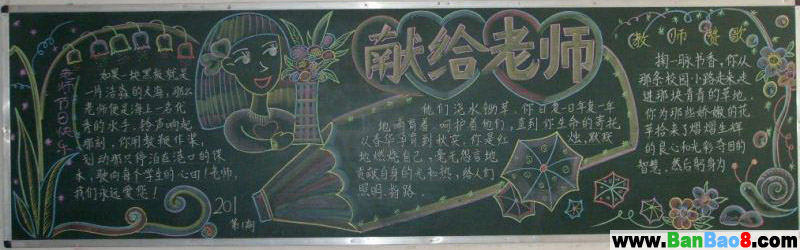 献给老师
老师节日快乐
如果一块黑板就是
一片浩淼的大海,那么
老师便是海上一名优
秀的水手.铃声响起
那刻,你用教鞭作桨,
划动那只停泊在港口的
水,驶向每个学生的心田!老师,
我们永远爱您!
201
第1期
他们浇水锄草.你日复一日年复一年
地哺育着、呵护着他们,直到你生命的
从春华早育到秋实.你是红烛,默默
地燃烧自己,毫无怨言地
贡献自身的光和热,给人们
照明.指路.
教师赞歌
掬一脉书香,你从
那条校园小路走来走
进那块青青的草地.
你为那些娇嫩的花
草给来了熠熠生辉
的良心和光彩夺目的
智慧.然后躬身为
www.BanBao8.com